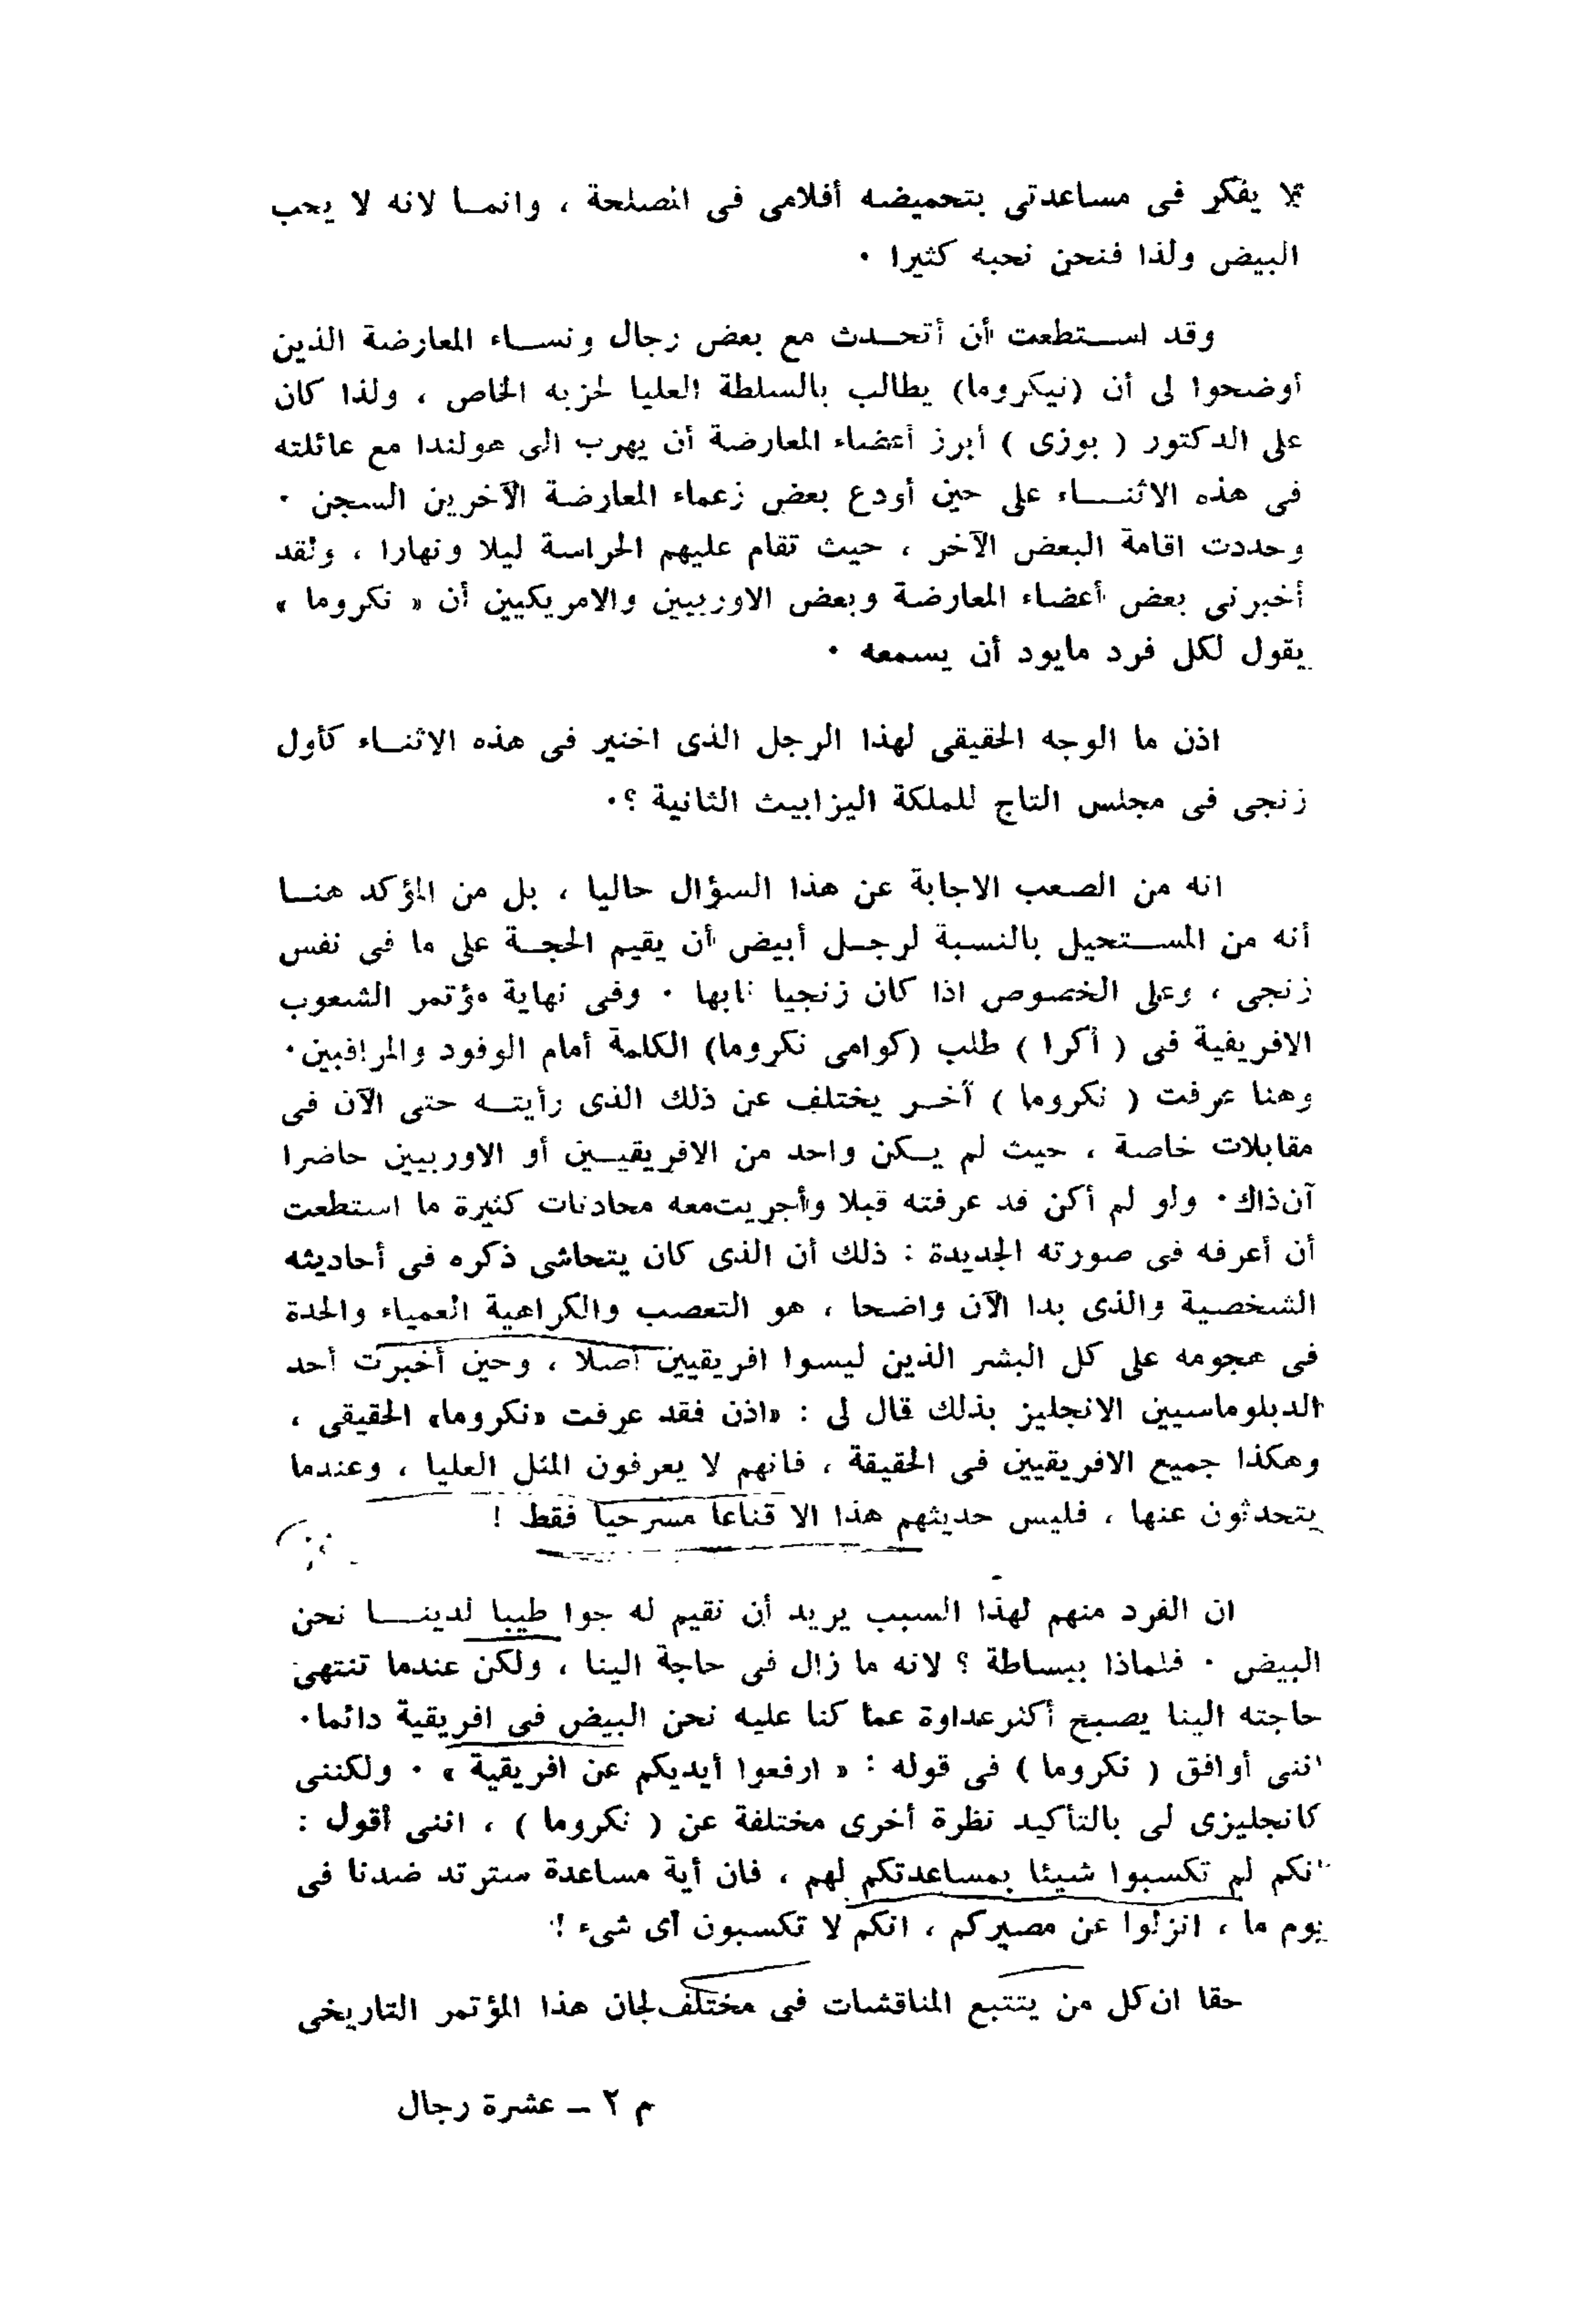 لا يفكر فى مساعدتى بتحميضه أفلامى فى المصلحة ، وانما لانه لا يحب
البيض ولذا فنحن نحبه كثيرا ٠
وقد استطعت أن أتحدث مع بعض رجال ونساء المعارضة الذين
أوضحوا لى أن (نيكروما) يطالب بالسلطة العليا لحزبه الخاص ، ولذا كان
على الدكتور ( بوزى ) أبرز أعضاء المعارضة أن يهرب الى هولندا مع عائلته
فى هذه الاثناء على حين أودع بعض زعماء المعارضة الآخرين السجن ٠
وحددت اقامة البعض الآخر ، حيث تقام عليهم الحراسة ليلا ونهارا ، ولقد
أخبرنى بعض أعضاء المعارضة وبعض الاوربيين والامريكيين أن « نكروما »
يقول لكل فرد مايود أن يسمعه ٠
اذن ما الوجه الحقيقى لهذا الرجل الذى اختير فى هذه الاثناء كأول
زنجى فى مجلس التاج للملكة اليزابيث الثانية ؟٠
انه من الصعب الاجابة عن هذا السؤال حاليا ، بل من المؤكد هنا
أنه من المستحيل بالنسبة لرجل أبيض أن يقيم الحجة على ما فى نفس
زنجى ، وعلى الخصوص اذا كان زنجيا نابها ٠ وفى نهاية مؤتمر الشعوب
الافريقية فى ( أكرا ) طلب (كوامى نكروما) الكلمة أمام الوفود والمراقبين٠
وهنا عرفت ( نكروما ) آخر يختلف عن ذلك الذى رأيته حتى الآن فى
مقابلات خاصة ، حيث لم يكن واحد من الافريقيين أو الاوربيين حاضرا
آن‌ذاك٠ ولو لم أكن قد عرفته قبلا وأجريت‌معه محادثات كثيرة ما استطعت
أن أعرفه فى صورته الجديدة : ذلك أن الذى كان يتحاشى ذكره فى أحاديثه
الشخصية والذى بدا الآن واضحا ، هو التعصب والكراهية العمياء والحدة
فى هجومه على كل البشر الذين ليسوا افريقيين أصلا ، وحين أخبرت أحد
الدبلوماسيين الانجليز بذلك قال لى : «اذن فقد عرفت «نكروما» الحقيقى ،
وهكذا جميع الافريقيين فى الحقيقة ، فانهم لا يعرفون المثل العليا ، وعندما
يتحدثون عنها ، فليس حديثهم هذا الا قناعا مسرحيا فقط !
ان الفرد منهم لهذا السبب يريد أن نقيم له جوا طيبا لدينا نحن
البيض ٠ فلماذا ببساطة ؟ لانه ما زال فى حاجة الينا ، ولكن عندما تنتهى
حاجته الينا يصبح أكثرعداوة عما كنا عليه نحن البيض فى افريقية دائما٠
اننى أوافق ( نكروما ) فى قوله : « ارفعوا أيديكم عن افريقية » ٠ ولكننى
كانجليزى لى بالتأكيد نظرة أخرى مختلفة عن ( نكروما ) ، اننى أقول :
انكم لم تكسبوا شيئا بمساعدتكم لهم ، فان أية مساعدة سترتد ضدنا فى
يوم ما ، انزلوا عن مصيركم ، انكم لا تكسبون أى شىء !
حقا ان‌كل من يتتبع المناقشات فى مختلف‌لجان هذا المؤتمر التاريخى
م ٢ – عشرة رجال